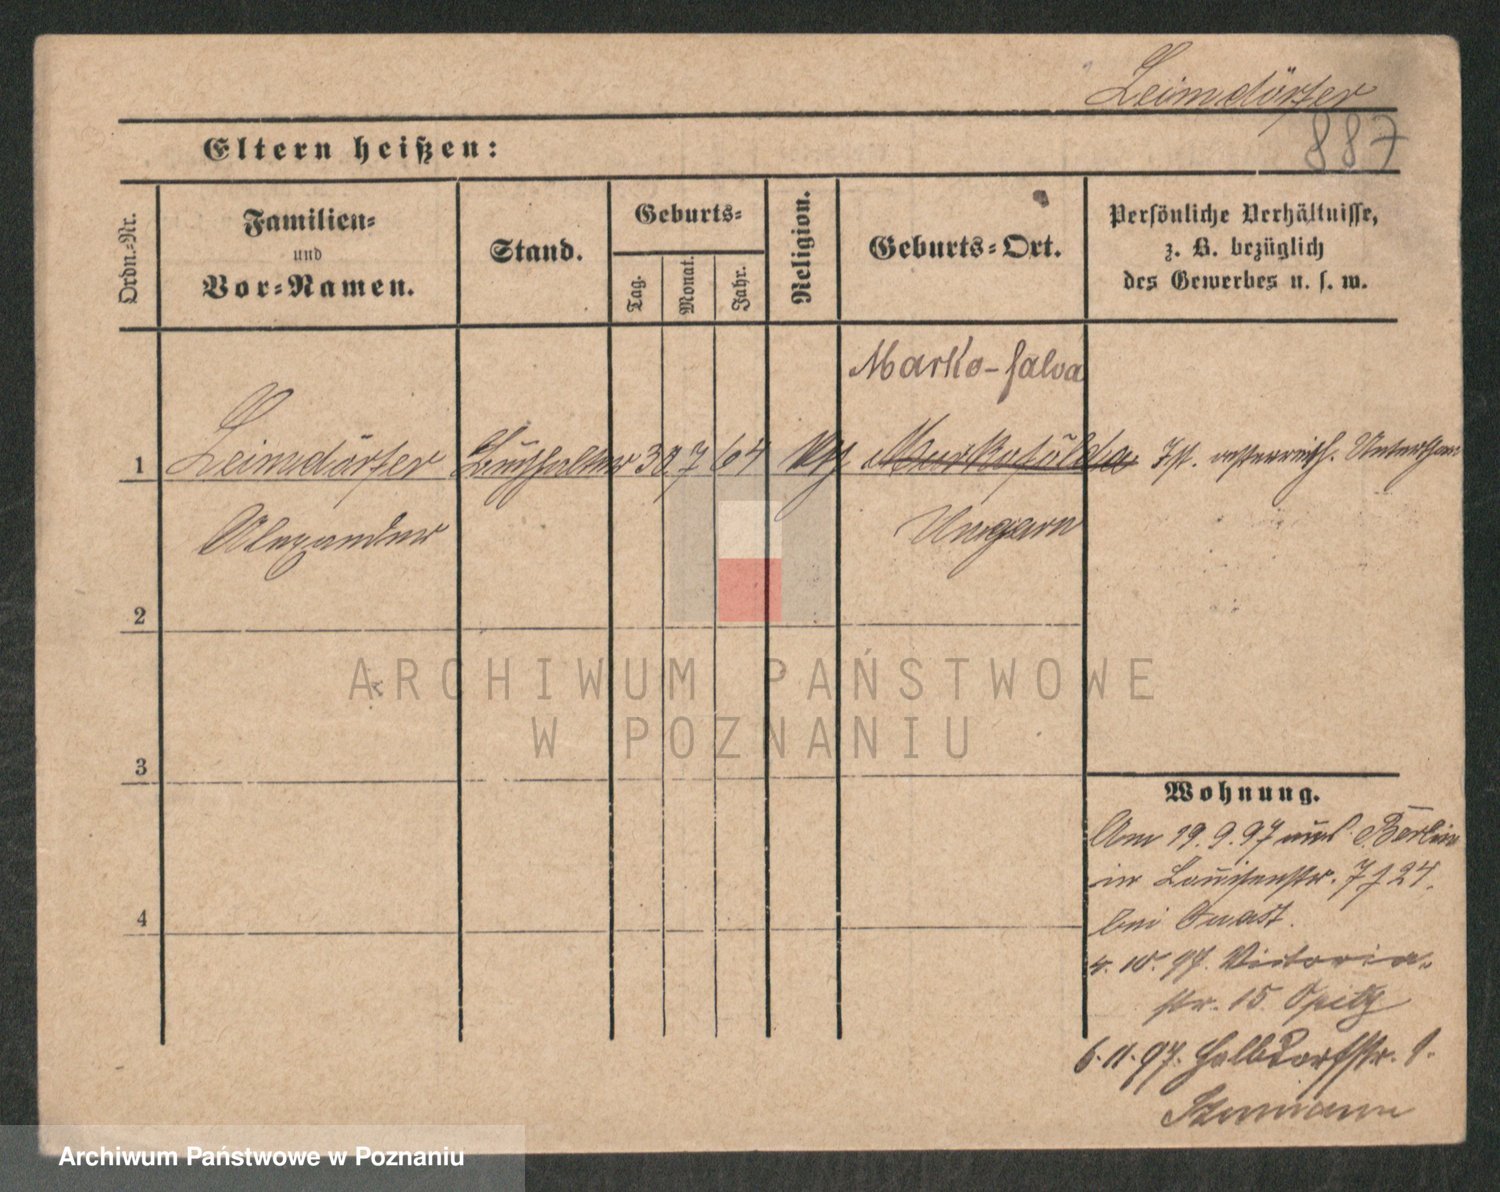 Leimdörfer
887
Eltern heißen:
Ordn.-Nr.
Familien-
und
Vor-Namen.
Stand.
Geburts-
Tag.
Monat.
Jahr.
Religion.
Geburts-Ort.
Persönliche Verhältnisse,
z. B. bezüglich
des Gewerbes u. s. w.
Marko-falva
1 Leimdörfer Buchhalter 30 7 64 Markofölda Ist österreich. Unterthan
Alexander Ungarn
2
3
4
Wohnung.
Am 19.9.97 aus Berlin
in Louisenstr. 7 f 24.
bei Quast.
4.10.97. Victoria-
str. 15. Opitz
6.11.97. Halbdorfstr. 9.
ARCHIWUM PAŃSTWOWE
W POZNANIU
Archiwum Państwowe w Poznaniu